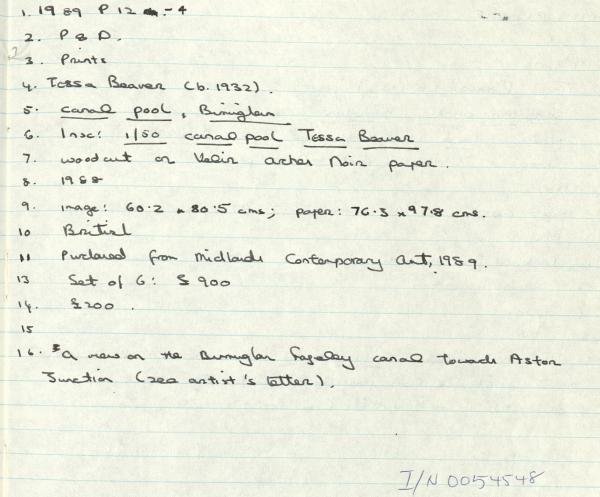 1. 1989 P 12 .-4
2. P & D.
3. Prints
4. Tessa Beaver (b. 1932).
5. canal pool, Birmingham
6. Insc: 1/50 canal pool Tessa Beaver
7. woodcut on Velin arches Noir paper.
8. 1988
9. image: 60.2 x 80.5 cms; paper: 76.3 x 97.8 cms.
10 British
11 Purchased from Midlands Contemporary Art, 1989.
13 Set of 6: £900
14. £200.
15
16. "a view on the Birmingham Fazeley canal towards Aston
Junction (see artist's letter).
I/N 0054548